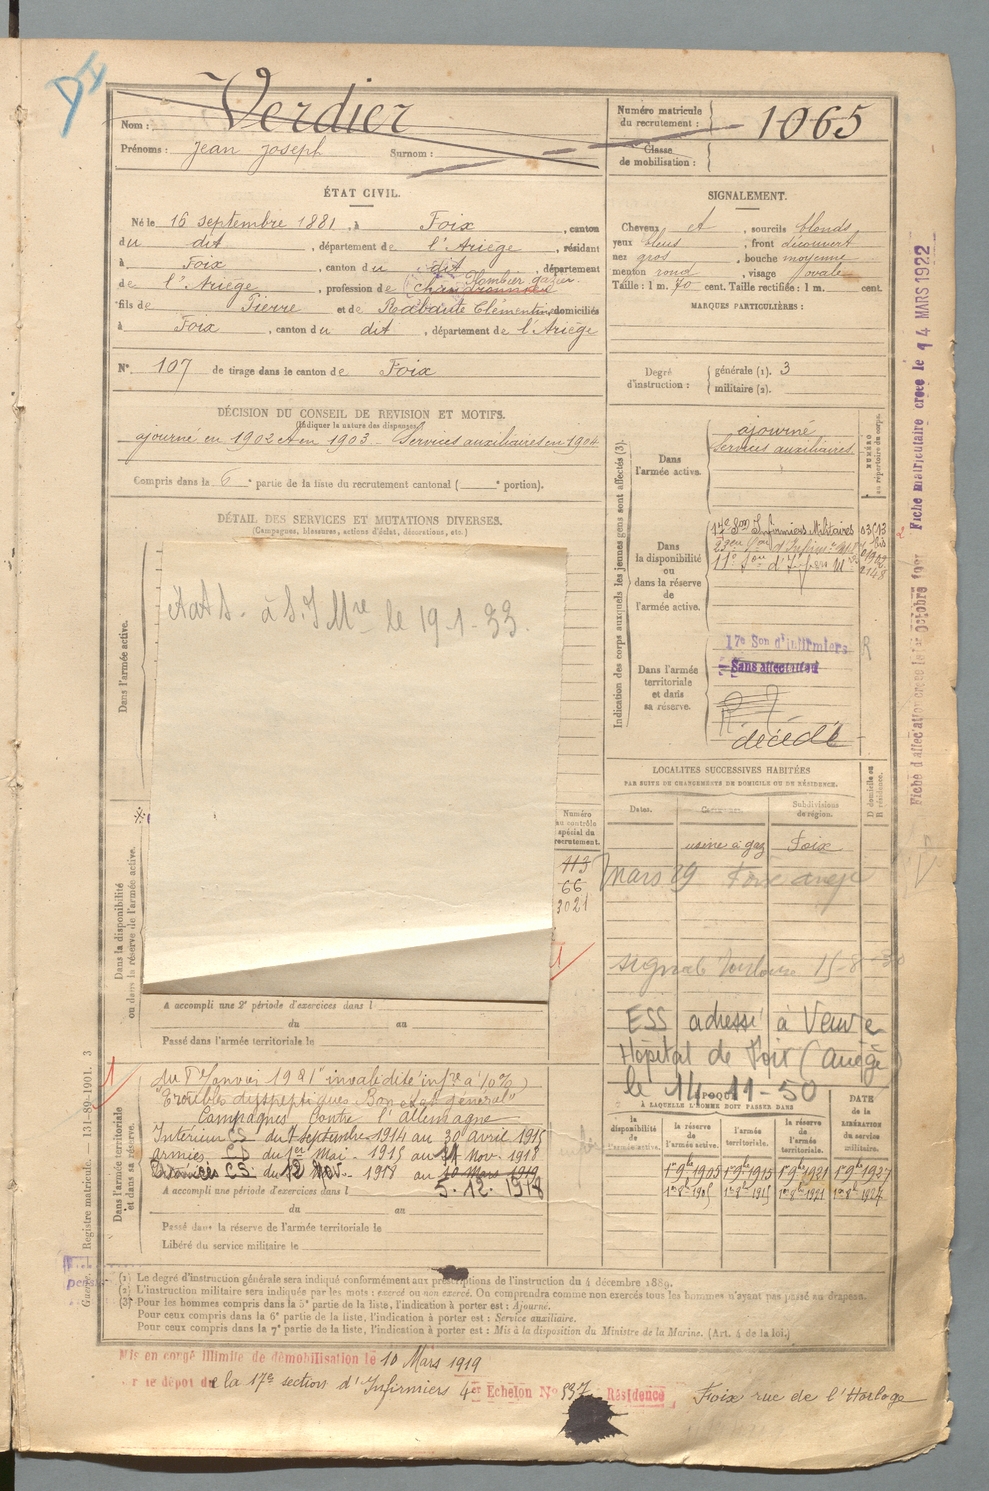 Nom : Verdier
Prénoms : Jean Joseph Surnom :
Numéro matricule du recrutement : 1065
Classe de mobilisation :
ÉTAT CIVIL.
Né le 16 septembre 1881, à Foix, canton
du dit, département de l'Ariège, résidant
à Foix, canton du dit, département
de l'Ariège, profession de Plombier gazier
fils de Pierre et de Rabaute Clémentine, domiciliés
à Foix, canton du dit, département de l'Ariège
N° 107 de tirage dans le canton de Foix
DÉCISION DU CONSEIL DE REVISION ET MOTIFS.
(Indiquer la nature des dispenses)
ajourné en 1902 et en 1903 - Services auxiliaires en 1904
Compris dans la 6e partie de la liste du recrutement cantonal ( e portion).
DÉTAIL DES SERVICES ET MUTATIONS DIVERSES.
(Campagnes, blessures, actions d'éclat, décorations, etc.)
Dans l'armée active.
à S.I. Mre le 19-1-33.
Dans la disponibilité
ou dans la réserve de l'armée active.
Numéro
au contrôle
spécial du
recrutement.
113
66
3021
A accompli une 2e période d'exercices dans l
du au
Passé dans l'armée territoriale le
Dans l'armée territoriale
et dans sa réserve.
du 1er Janvier 1921 "invalidité infre à 10%)
"Troubles dyspeptiques Bon état général"
Campagnes Contre l'Allemagne
Intérieur CS du 1 septembre 1914 au 30 avril 1915
armées CD du 1er Mai 1915 au 11 Nov. 1918
CS du 12 Nov. 1918 au 10 Mars 1919
5.12.1918
A accompli une période d'exercices dans l
du au
Passé dans la réserve de l'armée territoriale le
Libéré du service militaire le
SIGNALEMENT.
Cheveux ct, sourcils blonds
yeux bleus, front découvert
nez gros, bouche moyenne
menton rond, visage ovale
Taille : 1 m. 70 cent. Taille rectifiée : 1 m. cent.
MARQUES PARTICULIÈRES :
Degré d'instruction : générale (1). 3
militaire (2).
Indication des corps auxquels les jeunes gens sont affectés (3).
NUMÉRO au répertoire du corps.
Dans
l'armée active.
ajourné
Services auxiliaires.
Dans
la disponibilité
ou
dans la réserve
de
l'armée active.
17e Son Infirmiers Militaires
Dans l'armée
territoriale
et dans
sa réserve.
17e Son d'Infirmiers R
Sans affectation
décédé
LOCALITÉS SUCCESSIVES HABITÉES
PAR SUITE DE CHANGEMENTS DE DOMICILE OU DE RÉSIDENCE.
Dates. Communes. Subdivisions de région. D domicile ou R résidence.
usine à gaz Foix
Mars 29 Foix ariège
signalé Toulouse 15-8-30
ESS adressé à Veuve
Hôpital de Foix (Ariège)
le 14-11-50
ÉPOQUE
À LAQUELLE L'HOMME DOIT PASSER DANS
DATE
DE LA
LIBÉRATION
du service
militaire.
la disponibilité de l'armée active.
la réserve de l'armée active.
l'armée territoriale.
la réserve de l'armée territoriale.
1er 9bre 1905 1er 9bre 1915 1er 9bre 1921 1er 9bre 1927
1er 8bre 1905 1er 8bre 1915 1er 8bre 1921 1er 8bre 1927
(1) Le degré d'instruction générale sera indiqué conformément aux prescriptions de l'instruction du 4 décembre 1889.
(2) L'instruction militaire sera indiquée par les mots : exercé ou non exercé. On comprendra comme non exercés tous les hommes n'ayant pas passé au drapeau.
(3) Pour les hommes compris dans la 5e partie de la liste, l'indication à porter est : Ajourné.
Pour ceux compris dans la 6e partie de la liste, l'indication à porter est : Service auxiliaire.
Pour ceux compris dans la 7e partie de la liste, l'indication à porter est : Mis à la disposition du Ministre de la Marine. (Art. 4 de la loi.)
Mis en congé illimité de démobilisation le 10 Mars 1919
de la 17e section d'Infirmiers 4e Echelon N° 537 Résidence Foix rue de l'Horloge
Registre matricule. — 131-89-1901. 3
Fiche matriculaire créée le 14 MARS 1922